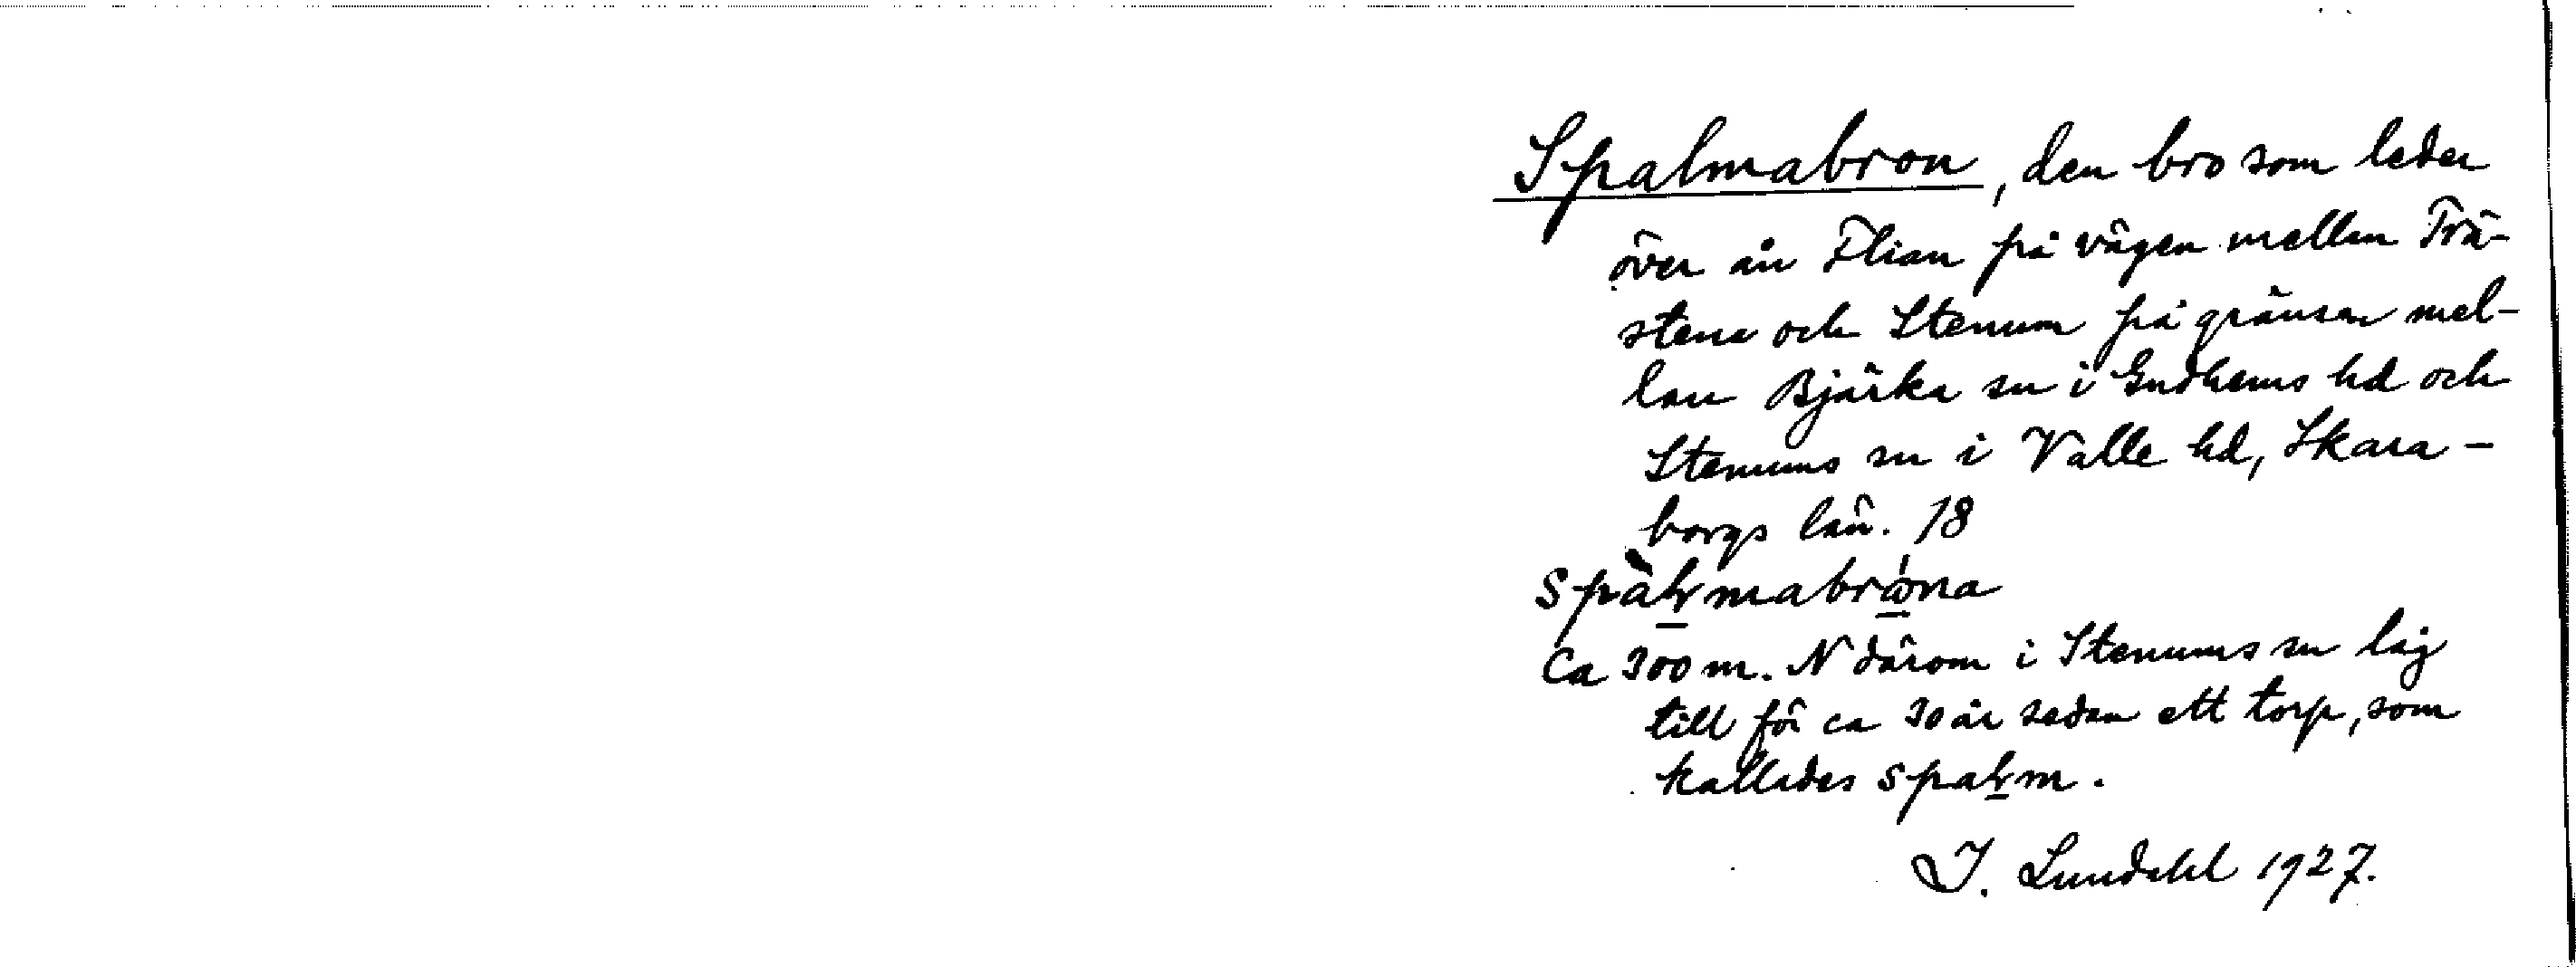 Spalmabron, den bro som leder
över ån Flian på vägen mellan Trä-
stena och Stenum på gränsen mel-
lan Bjärka sn i Gudhems hd och
Stenums sn i Valle hd, Skara-
borgs län. 18
Ca 300 m. N därom i Stenums sn låg
till för ca 30 år sedan ett torp, som
kallades
I. Lundahl 1927.